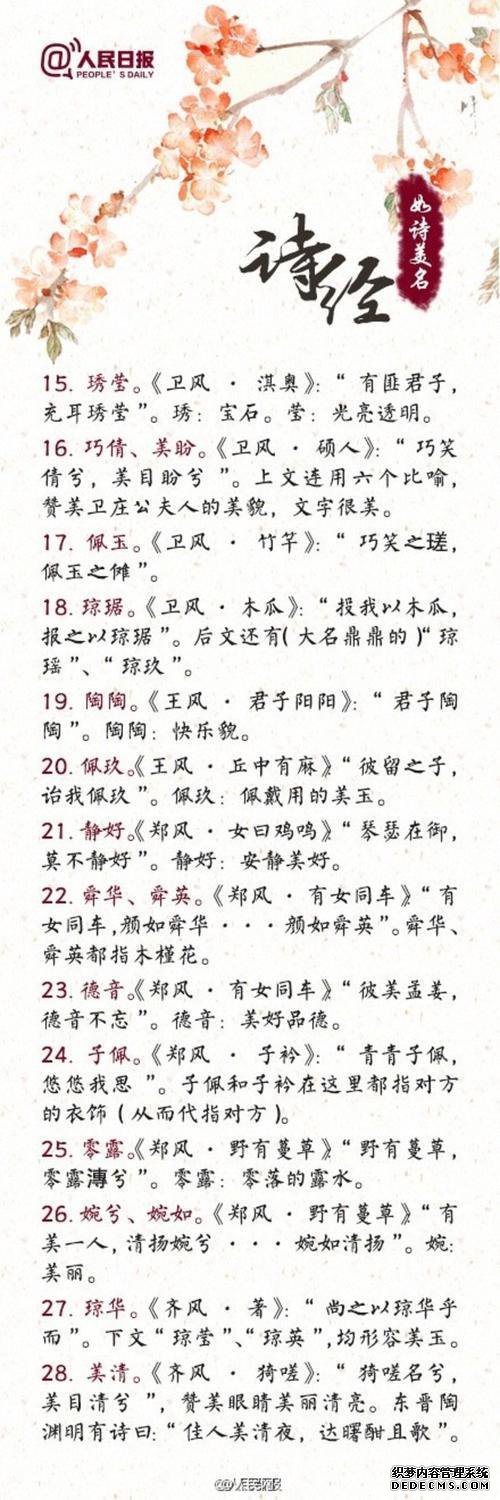 @人民日报
PEOPLE'S DAILY
如诗美名
诗经
15. 琇莹。《卫风 · 淇奥》：“ 有匪君子，
充耳琇莹 ”。琇：宝石。莹：光亮透明。
16. 巧倩、美盼。《卫风 · 硕人》：“ 巧笑
倩兮，美目盼兮 ”。上文连用六个比喻，
赞美卫庄公夫人的美貌，文字很美。
17. 佩玉。《卫风 · 竹竿》：“ 巧笑之瑳，
佩玉之傩 ”。
18. 琼琚。《卫风 · 木瓜》：“ 投我以木瓜，
报之以琼琚 ”。后文还有( 大名鼎鼎的 )“ 琼
瑶 ”、“ 琼玖 ”。
19. 陶陶。《王风 · 君子阳阳》：“ 君子陶
陶 ”。陶陶：快乐貌。
20. 佩玖。《王风 · 丘中有麻》“ 彼留之子，
诒我佩玖 ”。佩玖：佩戴用的美玉。
21. 静好。《郑风 · 女曰鸡鸣》“ 琴瑟在御，
莫不静好 ”。静好：安静美好。
22. 舜华、舜英。《郑风 · 有女同车》“ 有
女同车，颜如舜华 · · · 颜如舜英”。舜华、
舜英都指木槿花。
23. 德音。《郑风 · 有女同车》“ 彼美孟姜，
德音不忘 ”。德音：美好品德。
24. 子佩。《郑风 · 子衿》：“ 青青子佩，
悠悠我思 ”。子佩和子衿在这里都指对方
的衣饰 ( 从而代指对方 )。
25. 零露。《郑风 · 野有蔓草》“ 野有蔓草，
零露漙兮 ”。零露：零落的露水。
26. 婉兮、婉如。《郑风 · 野有蔓草》“ 有
美一人，清扬婉兮 · · · 婉如清扬 ”。婉：
美丽。
27. 琼华。《齐风 · 著》：“ 尚之以琼华乎
而 ”。下文“ 琼莹 ”、“ 琼英 ”，均形容美玉。
28. 美清。《齐风 · 猗嗟》：“ 猗嗟名兮，
美目清兮 ”，赞美眼睛美丽清亮。东晋陶
渊明有诗曰：“ 佳人美清夜，达曙酣且歌 ”。
@人民日报
织梦内容管理系统
DEDECMS.COM